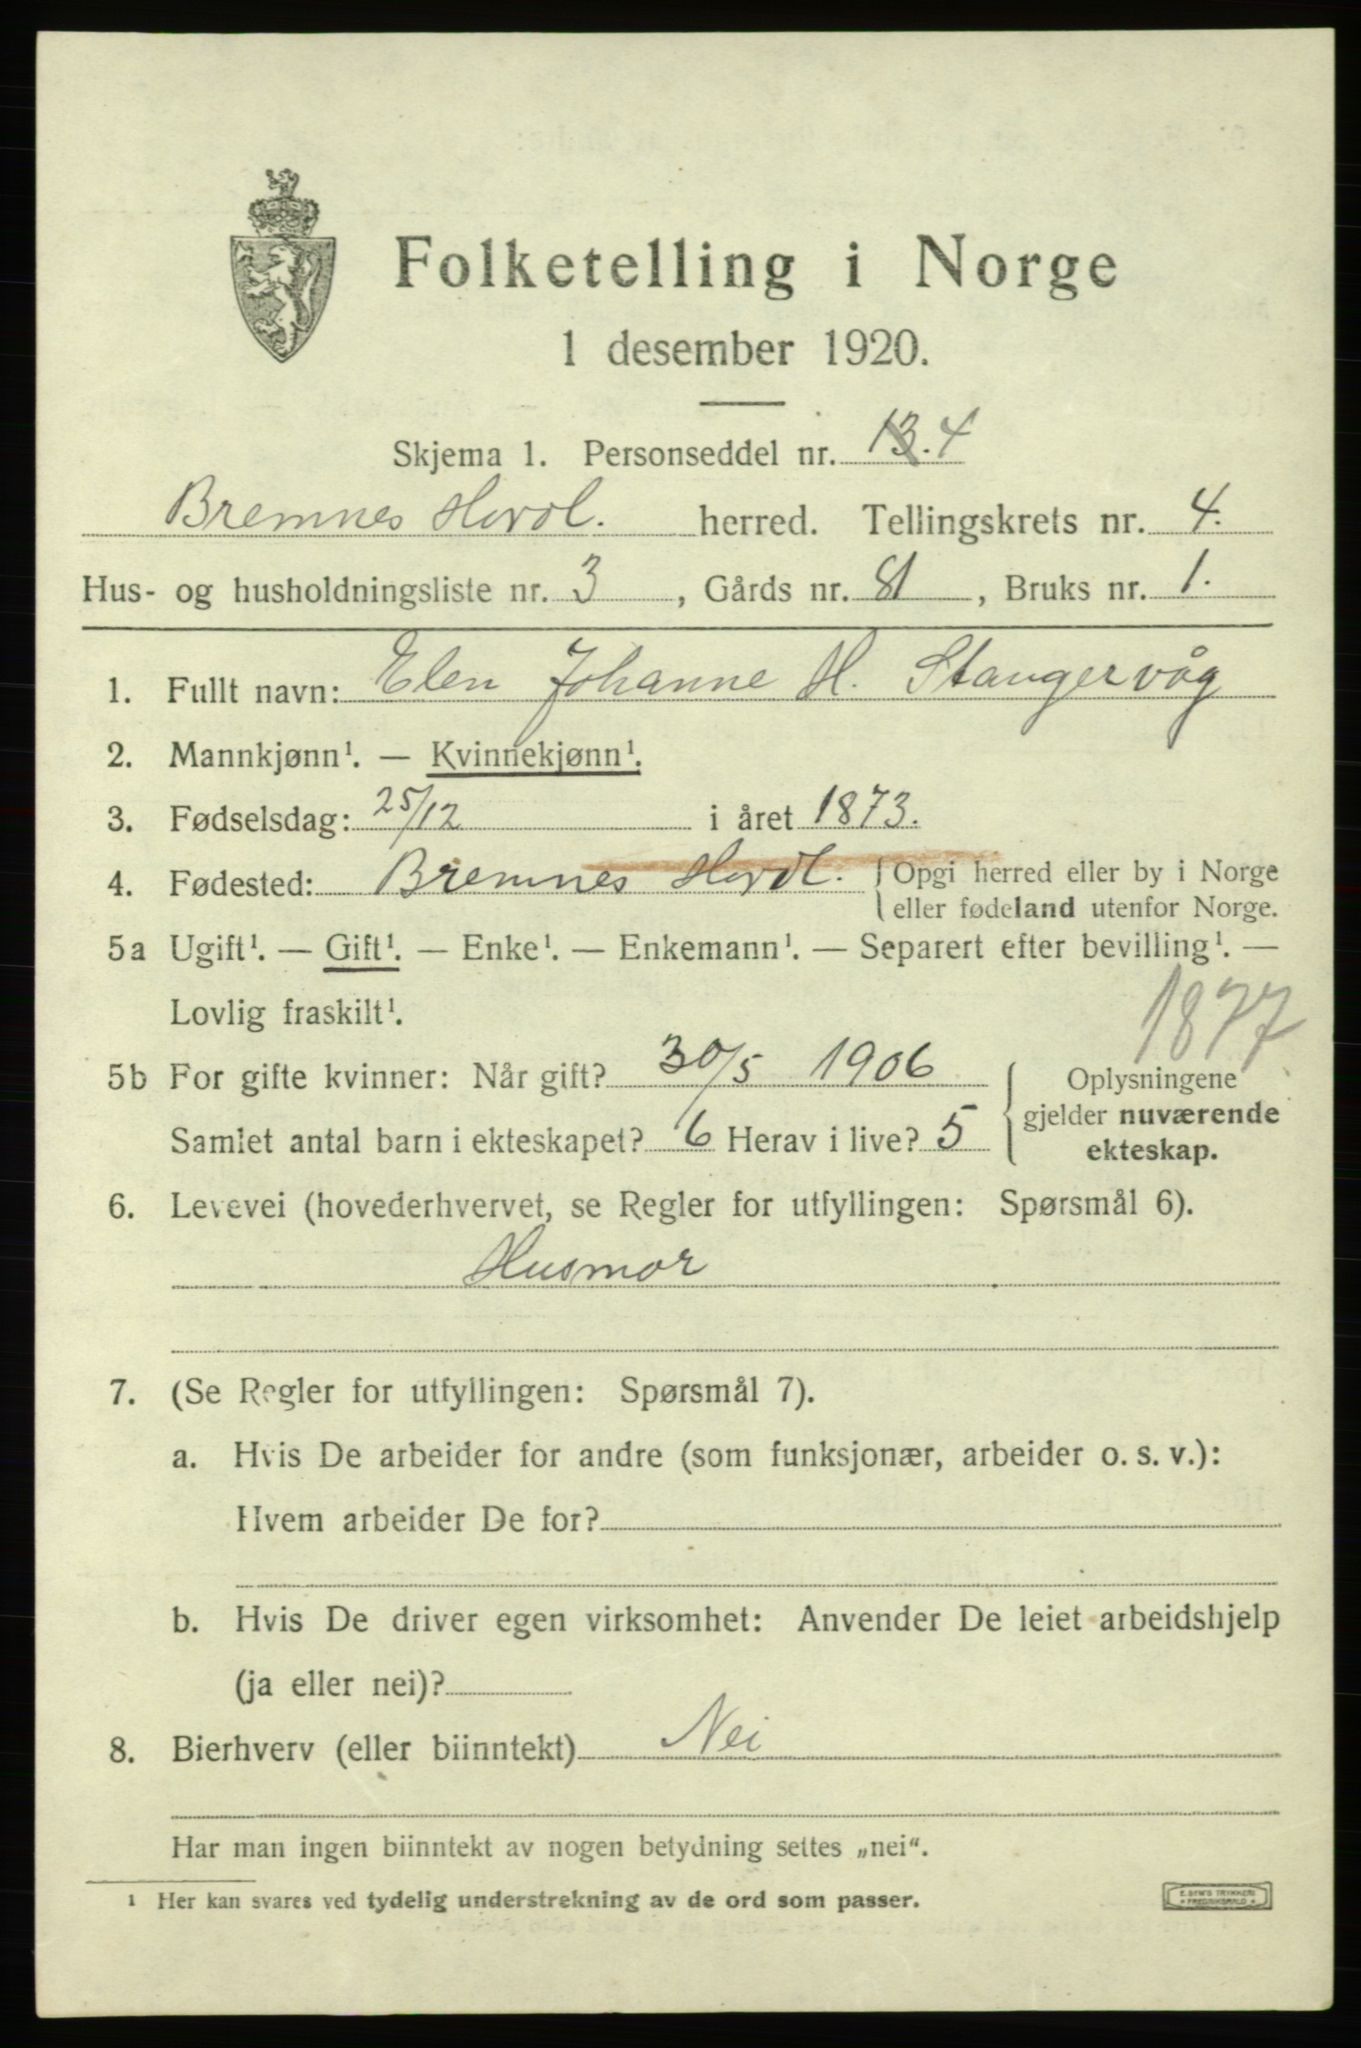 Folketelling i Norge
1 desember 1920.
Skjema 1. Personseddel nr. 13. 4
Bremnes Hordl. herred. Tellingskrets nr. 4.
Hus- og husholdningsliste nr. 3, Gårds nr. 81, Bruks nr. 1.
1. Fullt navn: Elen Johanne H. Stangervåg
2. Mannkjønn¹. — Kvinnekjønn¹.
3. Fødselsdag: 25/12 i året 1873.
4. Fødested: Bremnes Hordl. {Opgi herred eller by i Norge
eller fødeland utenfor Norge.
5a Ugift¹. — Gift¹. — Enke¹. — Enkemann¹. — Separert efter bevilling¹. —
Lovlig fraskilt¹.
1877
5b For gifte kvinner: Når gift? 30/5 1906
Samlet antal barn i ekteskapet? 6 Herav i live? 5
{Oplysningene
gjelder nuværende
ekteskap.
6. Levevei (hovederhvervet, se Regler for utfyllingen: Spørsmål 6).
Husmor
7. (Se Regler for utfyllingen: Spørsmål 7).
a. Hvis De arbeider for andre (som funksjonær, arbeider o. s. v.):
Hvem arbeider De for?
b. Hvis De driver egen virksomhet: Anvender De leiet arbeidshjelp
(ja eller nei)?
8. Bierhverv (eller biinntekt) Nei
Har man ingen biinntekt av nogen betydning settes „nei“.
¹ Her kan svares ved tydelig understrekning av de ord som passer.